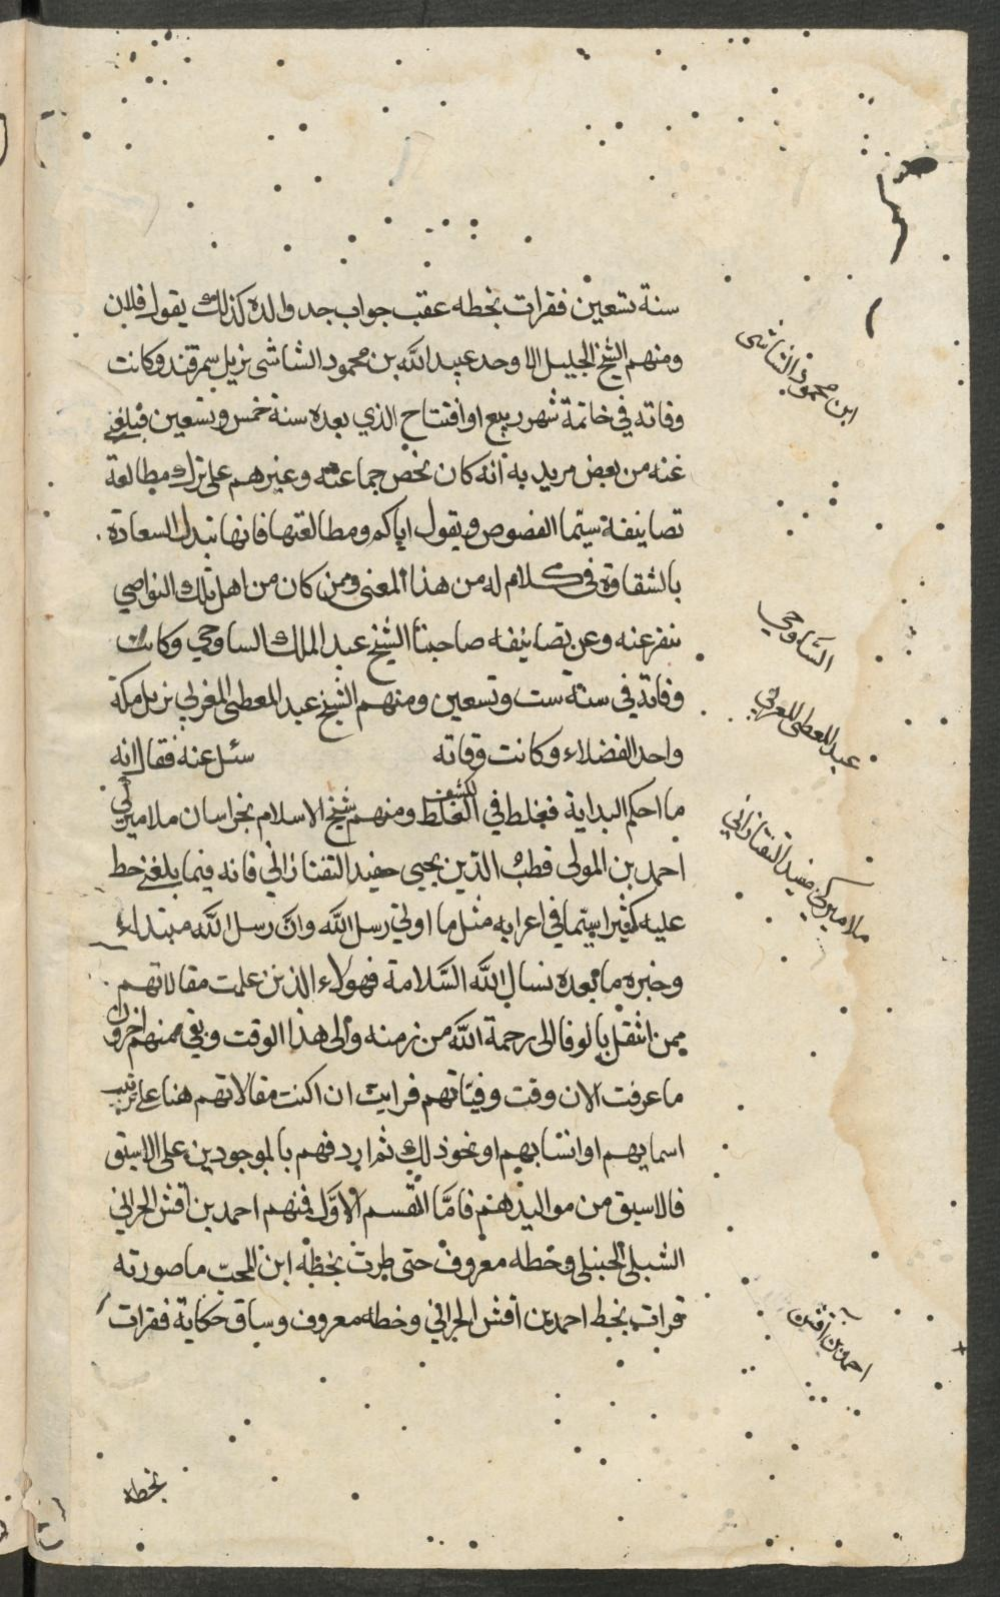 سنة تسعين فقرات بخطه عقب جواب جد والده كذلك يقول فلان
ومنهم الشيخ الجليل الاوحد عبيد الله بن محمود الشاشى نزيل سمرقند وكانت
وفاته في خاتمة شهر ربيع او افتتاح الذي بعده سنة خمس وتسعين فبلغني
عنه من بعض مريديه انه كان يخص جماعته وغيرهم على ترك مطالعة
تصانيفه سيّما الفصوص ويقول اياكم ومطالعتها فانها تبدل السعادة
بالشقاوة في كلام له من هذا المعنى وممن كان من اهل تلك النواحي
ينفر عنه وعن تصانيفه صاحبنا الشيخ عبد الملك الساوجي وكانت
وفاته في سنة ست وتسعين ومنهم الشيخ عبد المعطى المغربي نزيل مكة
واحد الفضلاء وكانت وفاته سئل عنه فقال انه
ما احكم البداية فغلط في الكشف الغلط ومنهم شيخ الاسلام بخراسان ملا ميركي
احمد بن المولى قطب الدين يحيى حفيد التفتازاني فانه فيما بلغني حط
عليه كثيرا سيّما في اعرابه مثل ما اوتي رسل الله وان رسل الله مبتداء
وخبره ما بعده نسال الله السّلامة فهولاء الذين علمت مقالاتهم
ممن انتقل بالوفا الى رحمة الله من زمنه والى هذا الوقت وبقي ممنهم اخرون
ما عرفت الان وقت وفياتهم فرايت ان اكتب مقالاتهم هنا على ترتيب
اسمايهم او انسابهم او نحو ذلك ثم اردفهم بالموجودين على الاسبق
فالاسبق من مواليدهم فامّا القسم الاوّل فمنهم احمد بن اقش الحراني
الشبلي الحنبلي وخطه معروف حتى طرت بخطه ابن المحب ما صورته
قرات بخط احمد بن اقش الحراني وخطه معروف وساق حكاية فقرات
بخطه
ابن محمود الشاشى
السّاوجي
عبد المعطى المغربي
ملا ميركي حفيد التفتازاني
احمد بن اقش